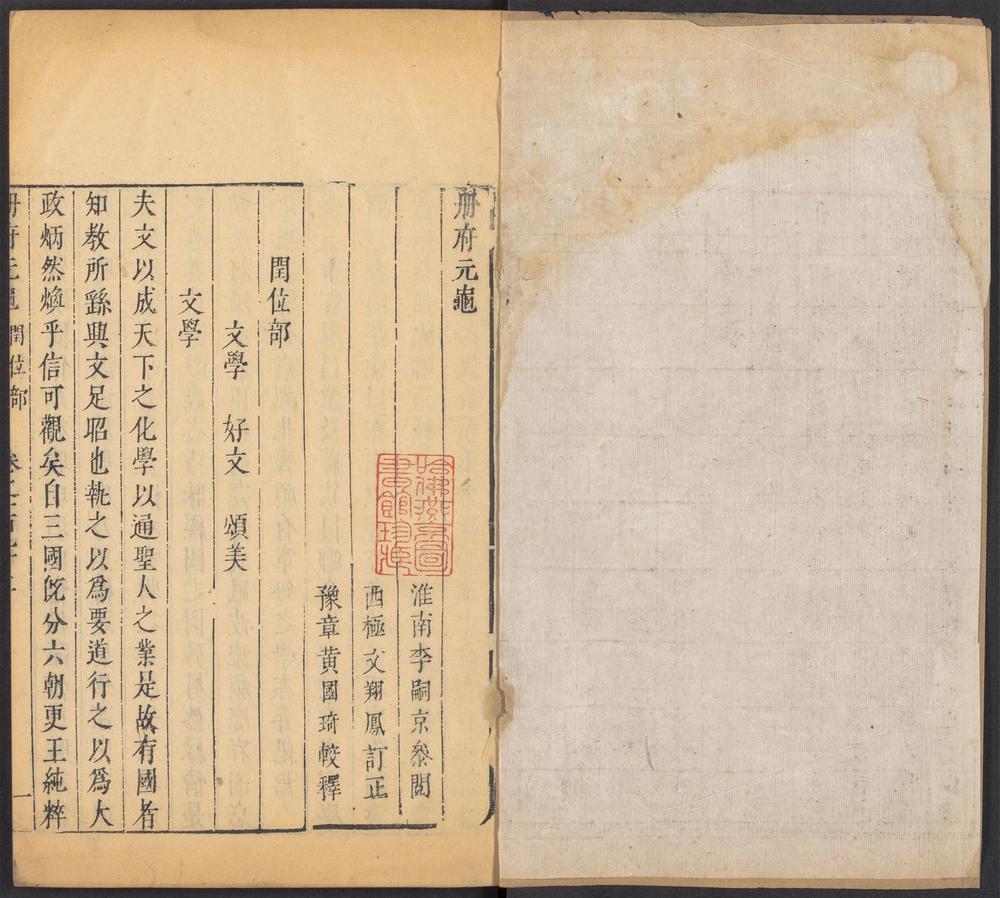 冊府元龜
淮南李嗣京叅閱
西極文翔鳳訂正
豫章黃國琦較釋
閏位部
文學　好文　頌美
文學
夫文以成天下之化學以通聖人之業是故有國者
知教所繇興文足昭也執之以為要道行之以為大
政炳然煥乎信可觀矣自三國既分六朝更王純粹
冊府元龜　閏位部
一
哈佛燕京圖書館珍藏